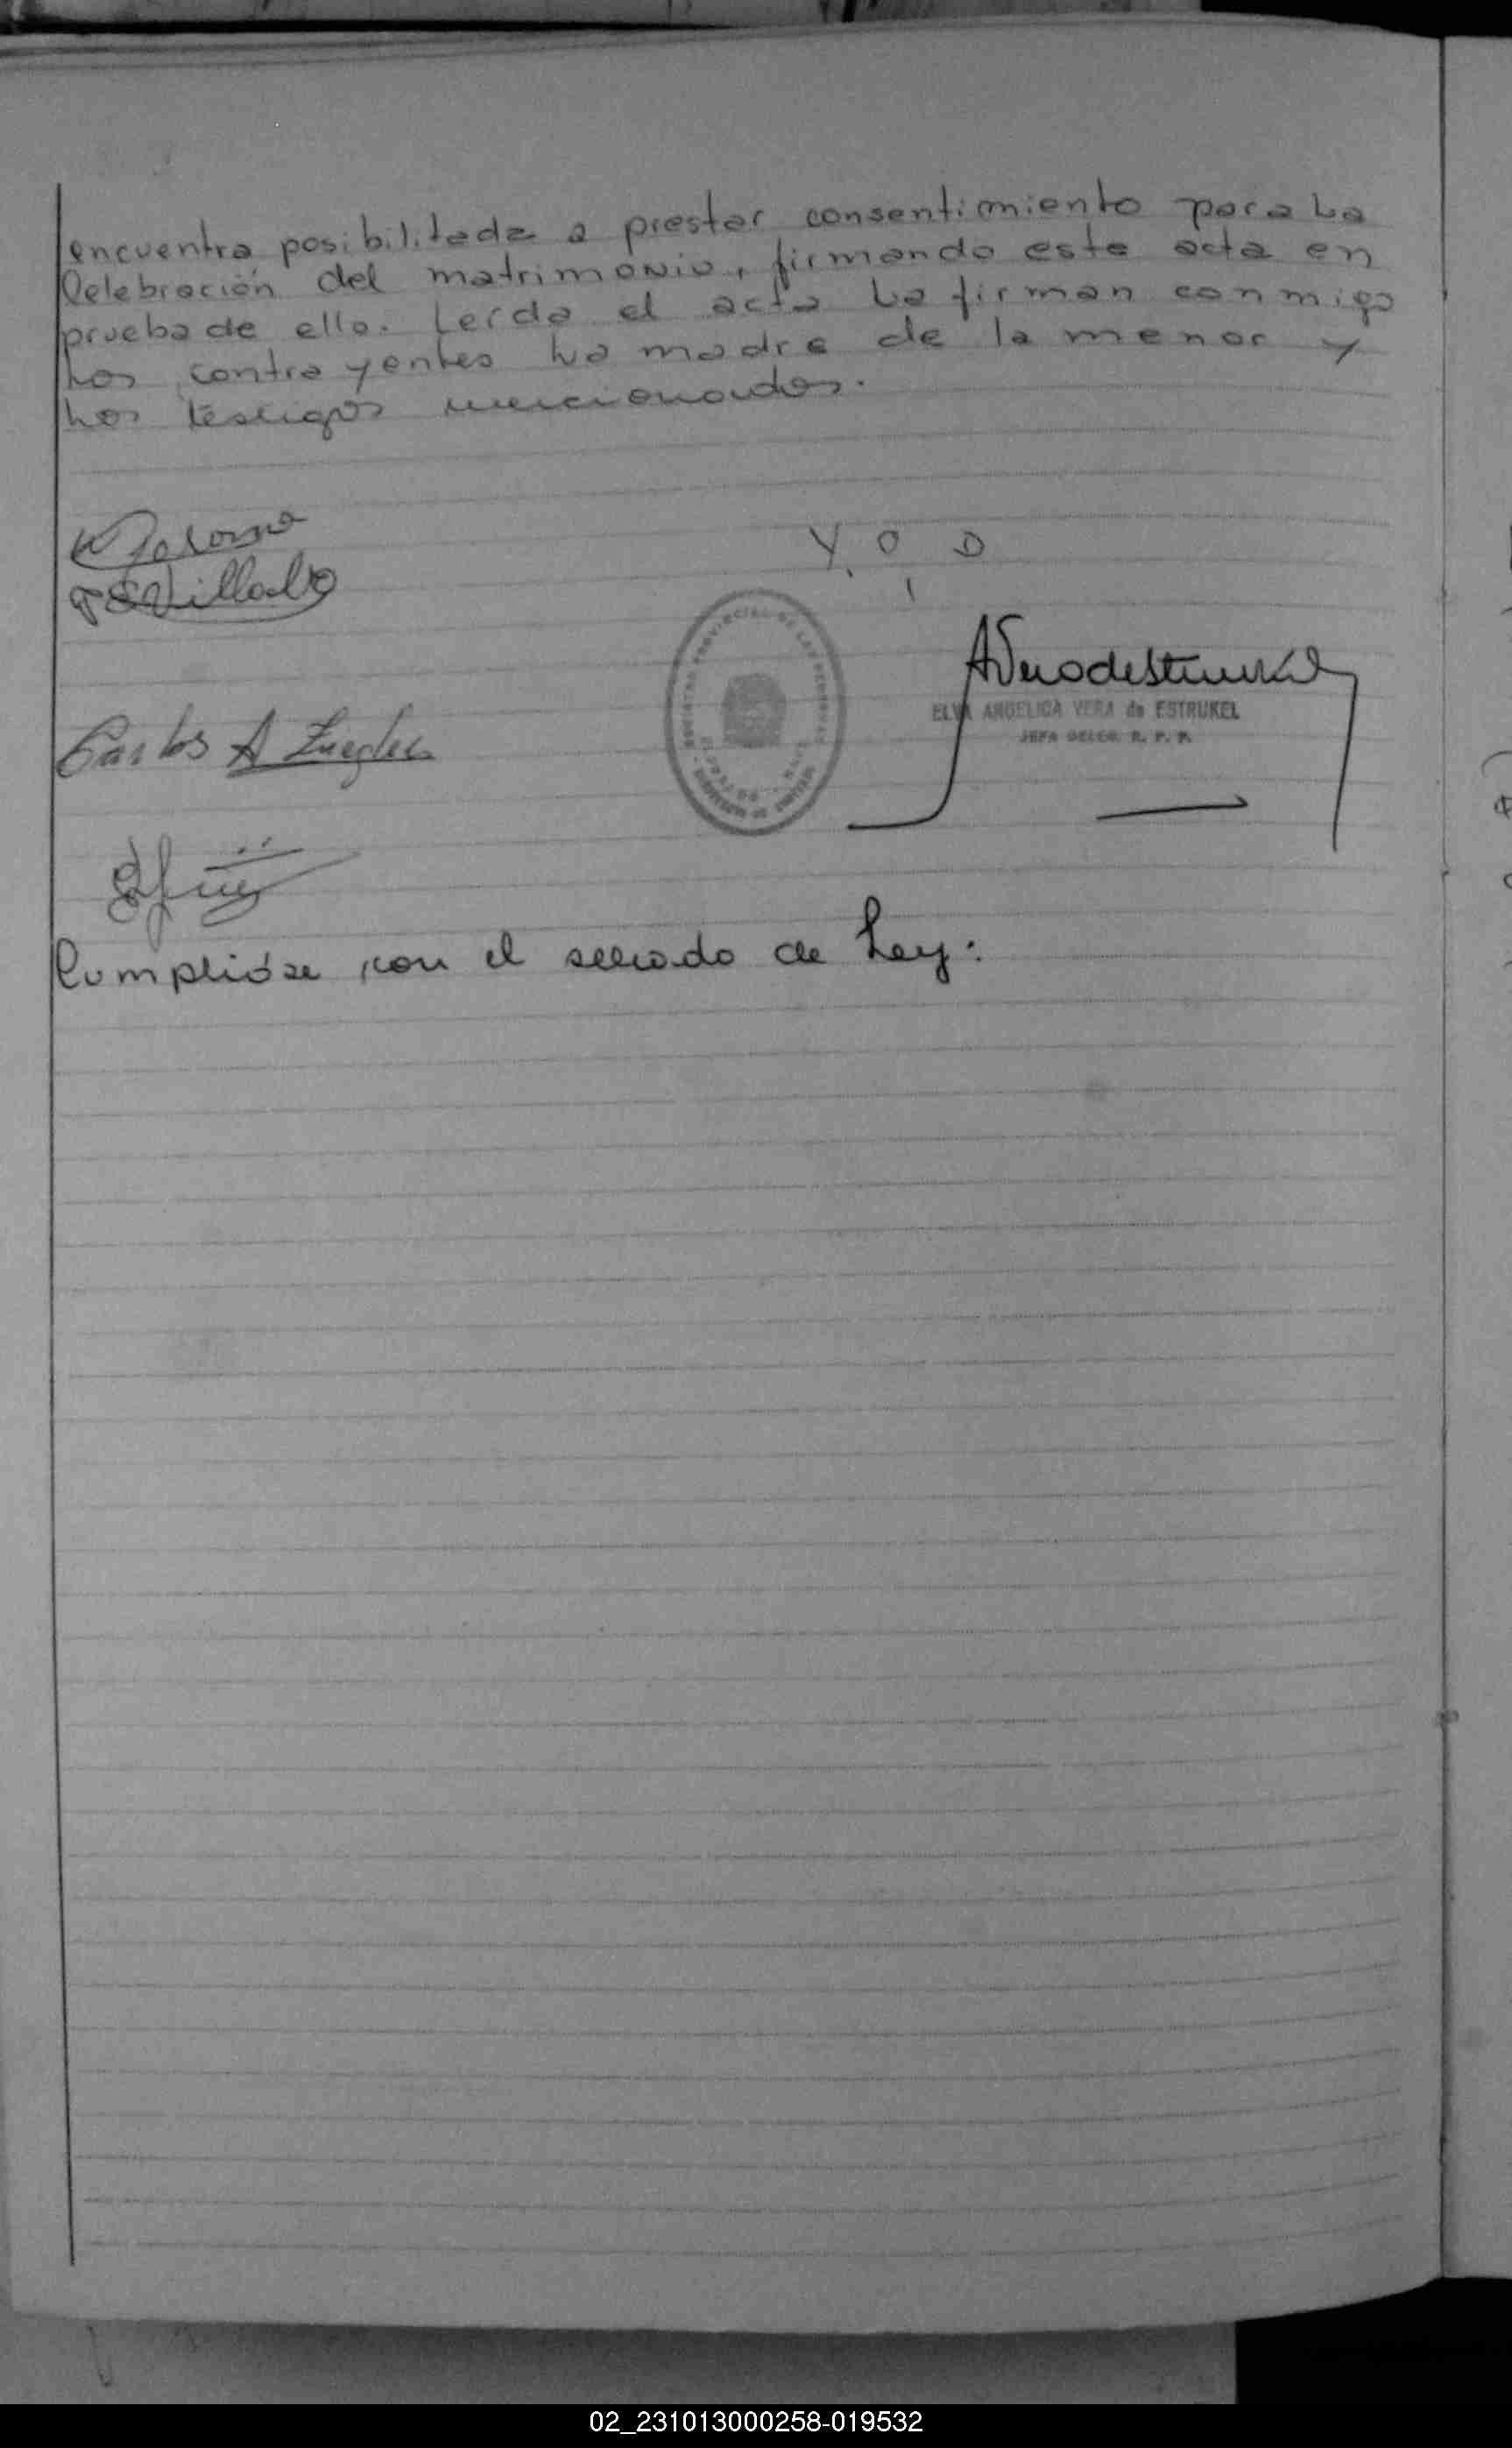 encuentra posibilitada a prestar consentimiento para La
Celebración del matrimonio, firmando este acta en
prueba de ello. Leida el acta La firman conmigo
Los contrayentes La madre de la menor y
Los testigos mencionados.
Y. O. D
Villalo
ELVA ANGELICA VERA de ESTRUKEL
JEFA DELEG. R. P. P.
Carlos A
Cumplióse con el sellado de Ley:
02_231013000258-019532